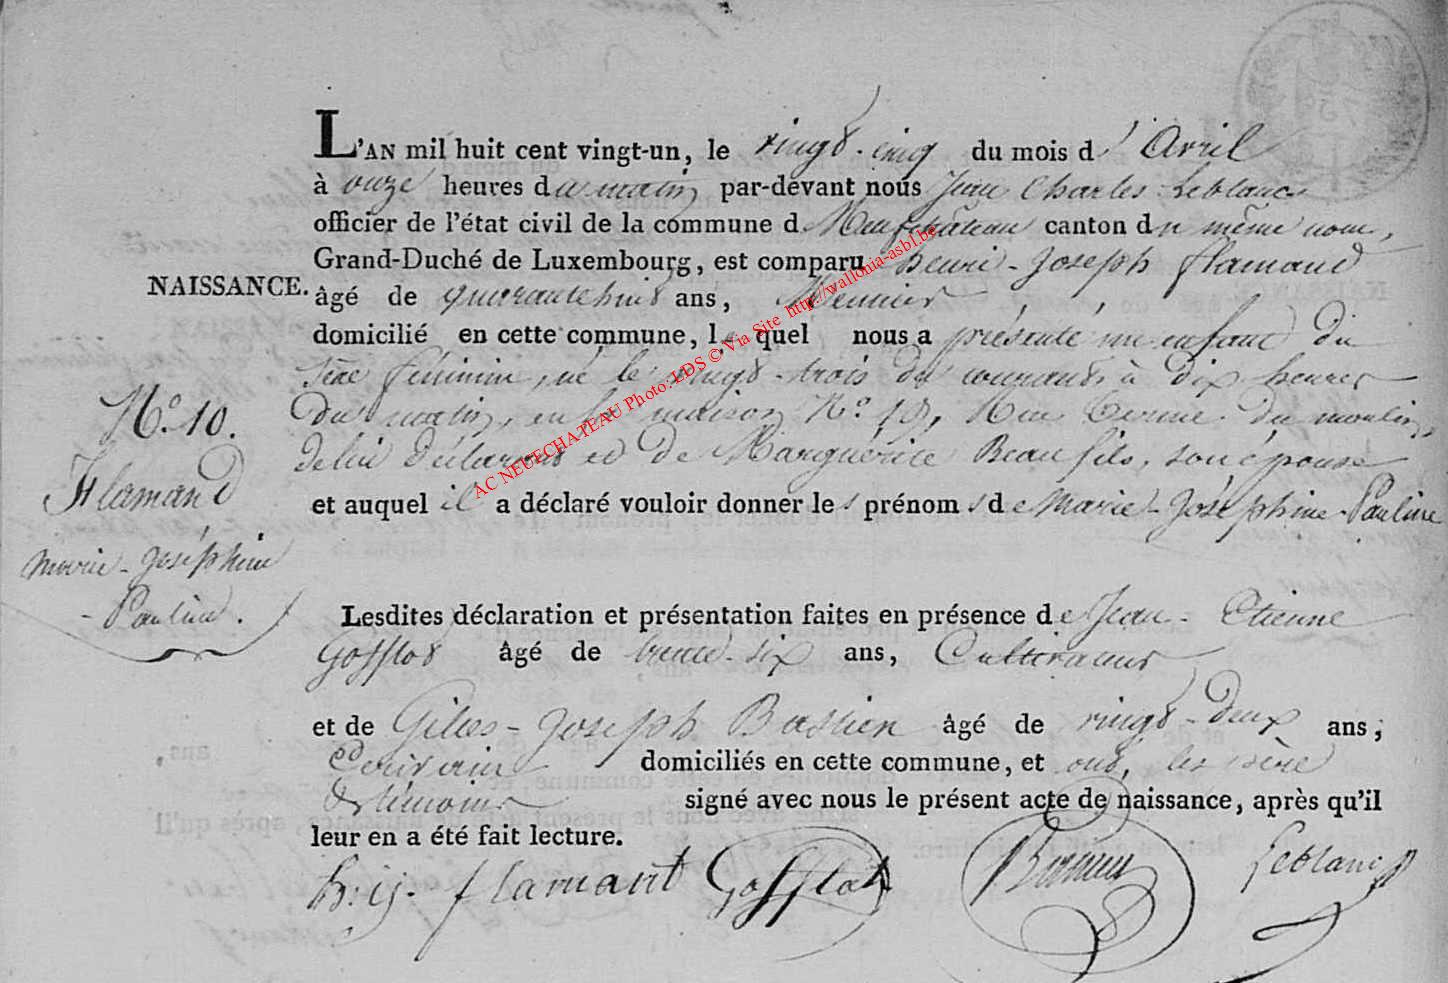 L'AN mil huit cent vingt-un, le vingt-cinq du mois d'Avril
à onze heures du matin par-devant nous Jean Charles Leblanc
officier de l'état civil de la commune d Neufchâteau canton du même nom,
Grand-Duché de Luxembourg, est comparu henri-Joseph flamand
NAISSANCE.
âgé de quarantehuit ans, Meunier
domicilié en cette commune, lequel nous a présenté un enfant du
sexe féminin, né le vingt-trois du courant, à dix heures
du matin, en la maison N.º 19, du moulin
de lui déclarant et de Marguérite Beaufils, son épouse
et auquel il a déclaré vouloir donner les prénoms de Marie-Joséphine-Pauline
N.º 10.
Flamand
Marie-Joséphine
-Pauline.
Lesdites déclaration et présentation faites en présence de Jean-Etienne
Gofflot âgé de trente-six ans, Cultivateur
et de Gilles-Joseph Bastien âgé de vingt-deux ans,
Ecrivain domiciliés en cette commune, et ont, les père
& témoins signé avec nous le présent acte de naissance, après qu'il
leur en a été fait lecture.
h: ij. flamant Gofflot Bastien Leblanc
AC NEUFCHATEAU Photo: LDS © Via Site http://wallonia-asbl.be